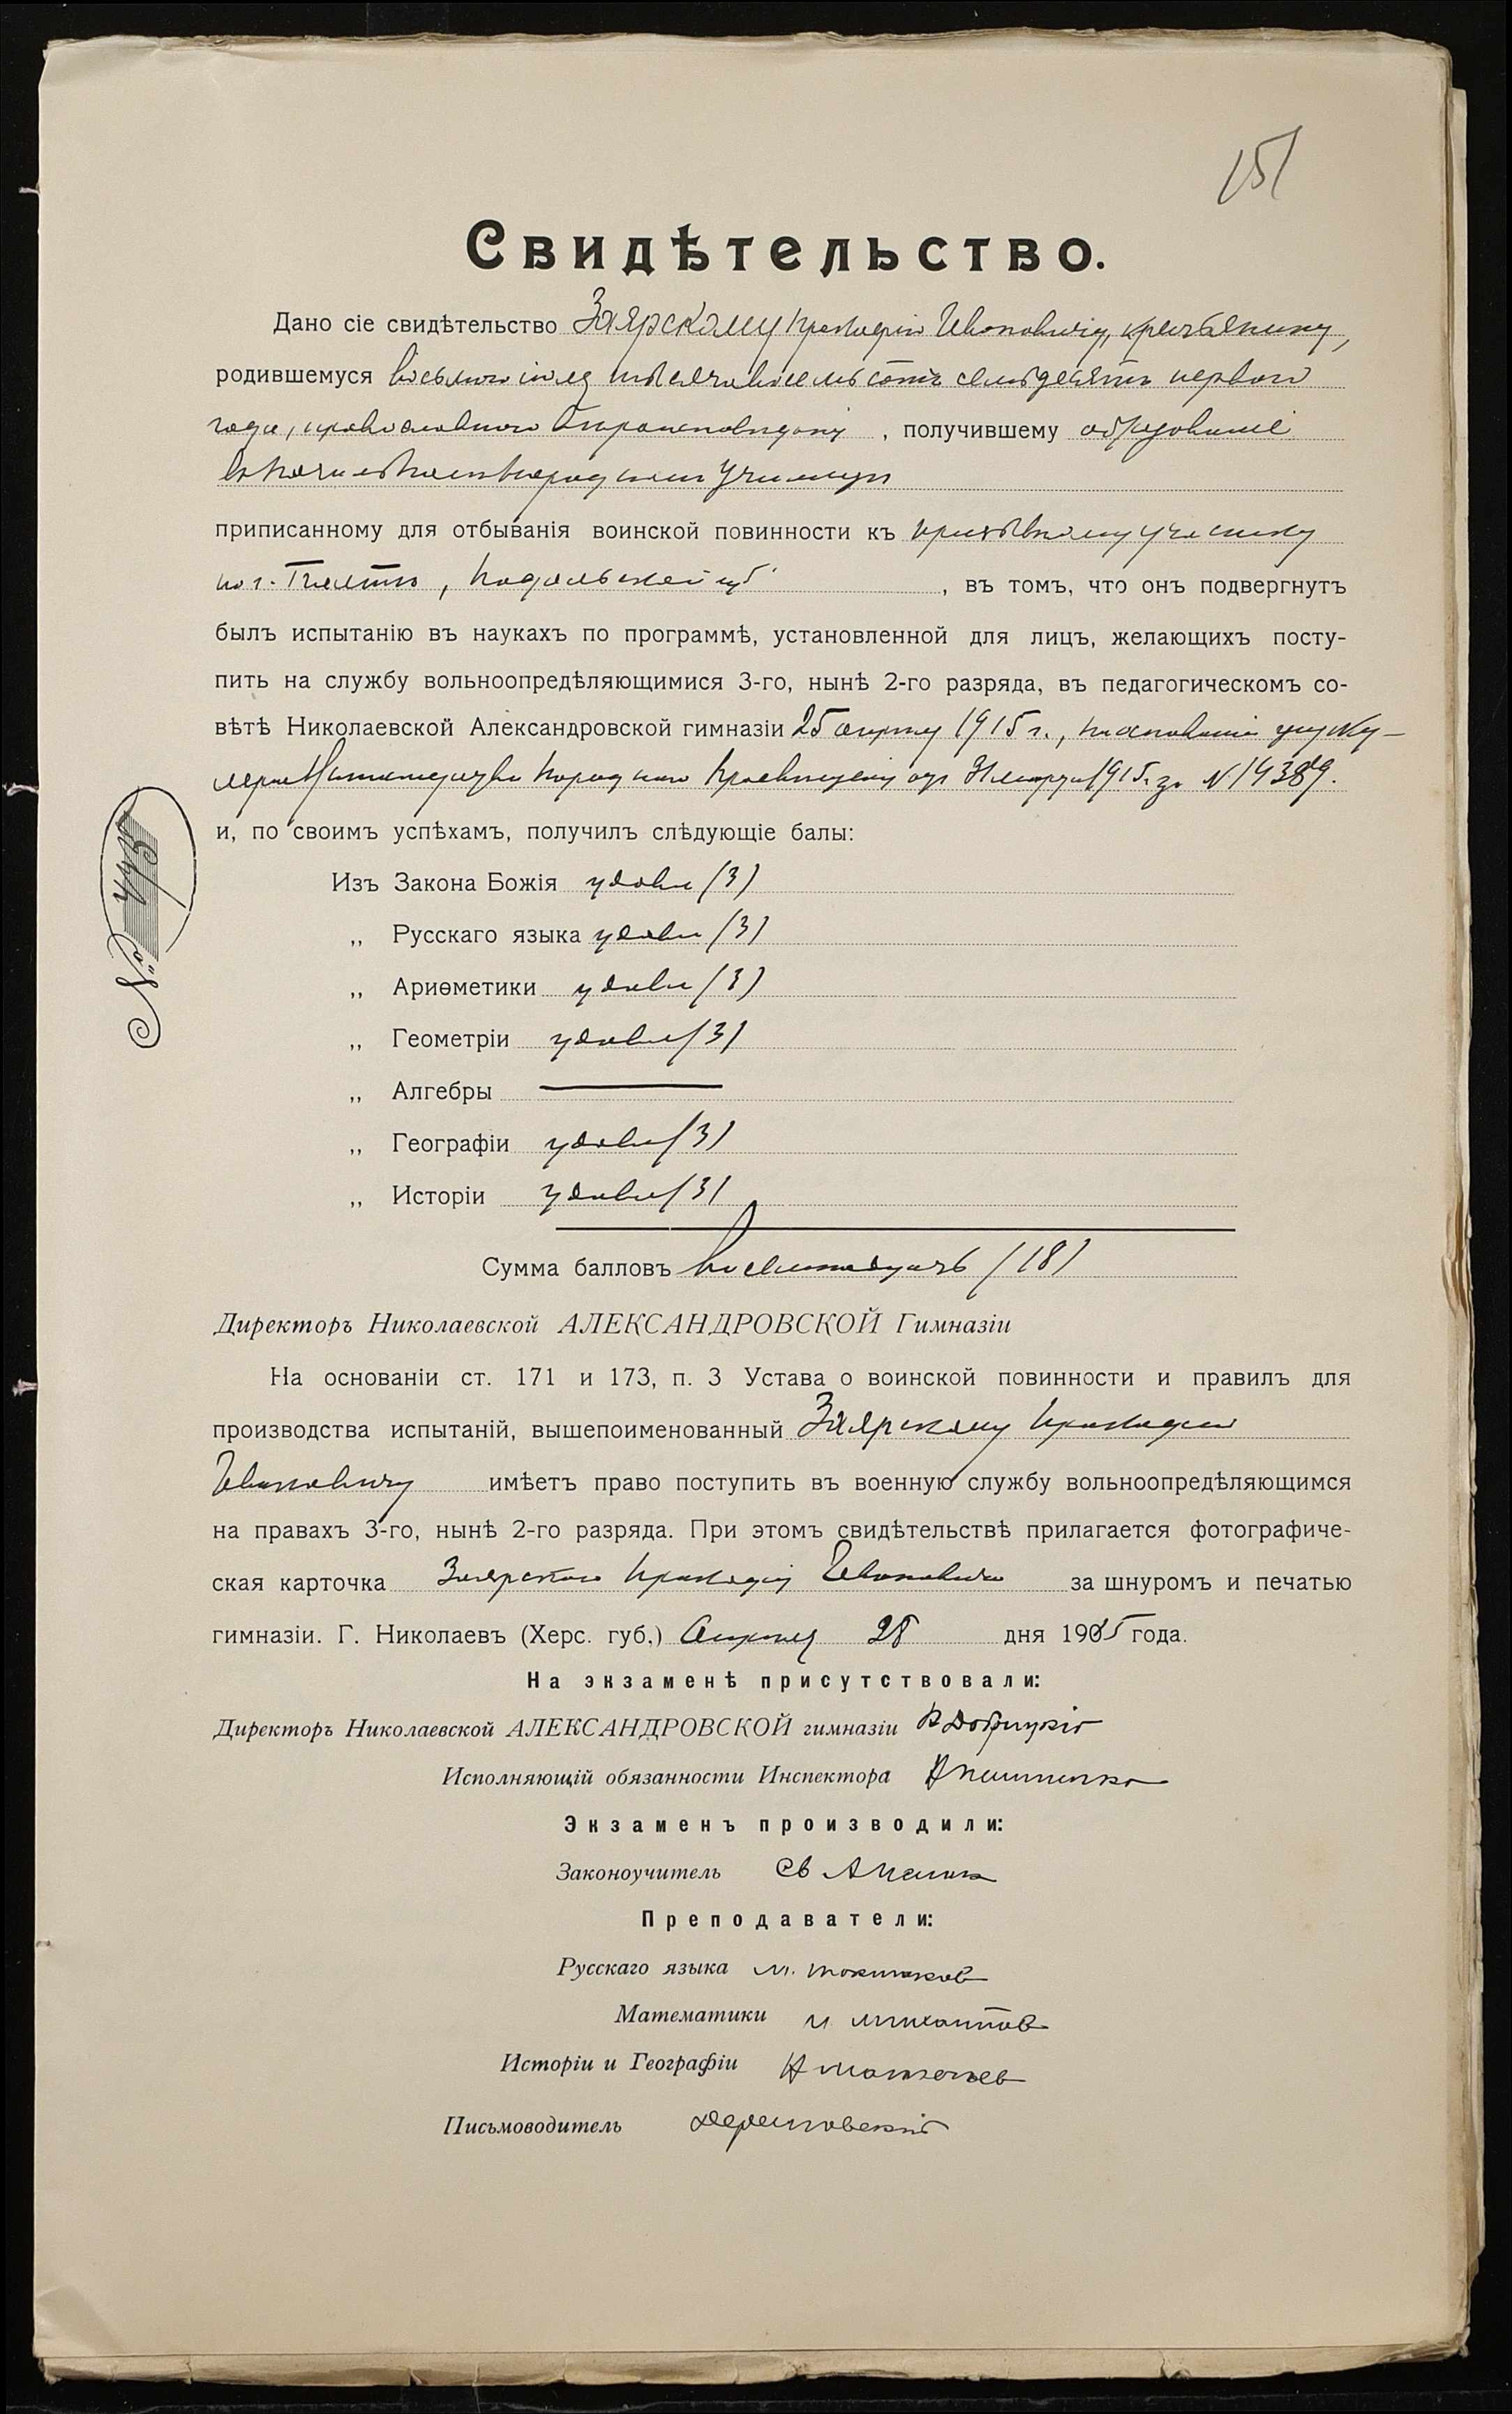 151
Свидѣтельство.
Дано сіе свидѣтельство Заярскому Ивановичу, крестьянину,
родившемуся восьмого іюля тысяча восемьсотъ семьдесятъ перваго
года, православнаго вѣроисповѣданія, получившему образованіе
въ начальномъ народномъ училищѣ
приписанному для отбыванія воинской повинности къ призывному участку
по г. Балтѣ, Подольской губ., въ томъ, что онъ подвергнутъ
былъ испытанію въ наукахъ по программѣ, установленной для лицъ, желающихъ посту-
пить на службу вольноопредѣляющимися 3-го, нынѣ 2-го разряда, въ педагогическомъ со-
вѣтѣ Николаевской Александровской гимназіи 25 апрѣля 1915 г., на основаніи цирку-
ляра Министерства Народнаго Просвѣщенія отъ 31 марта 1915 г. за № 14389.
и, по своимъ успѣхамъ, получилъ слѣдующіе балы:
№
Изъ Закона Божія удовл (3)
„ Русскаго языка удовл (3)
„ Ариѳметики удовл (3)
„ Геометріи удовл (3)
„ Алгебры —
„ Географіи удовл (3)
„ Исторіи удовл (3)
Сумма балловъ восемнадцать (18)
Директоръ Николаевской АЛЕКСАНДРОВСКОЙ Гимназіи
На основаніи ст. 171 и 173, п. 3 Устава о воинской повинности и правилъ для
производства испытаній, вышепоименованный Заярскому
Ивановичу имѣетъ право поступить въ военную службу вольноопредѣляющимся
на правахъ 3-го, нынѣ 2-го разряда. При этомъ свидѣтельствѣ прилагается фотографиче-
ская карточка Заярскаго Ивановича за шнуромъ и печатью
гимназіи. Г. Николаевъ (Херс. губ.) Апрѣля 28 дня 1915 года.
На экзаменѣ присутствовали:
Директоръ Николаевской АЛЕКСАНДРОВСКОЙ гимназіи
Исполняющій обязанности Инспектора
Экзаменъ производили:
Законоучитель Св
Преподаватели:
Русскаго языка М.
Математики И
Исторіи и Географіи Н
Письмоводитель